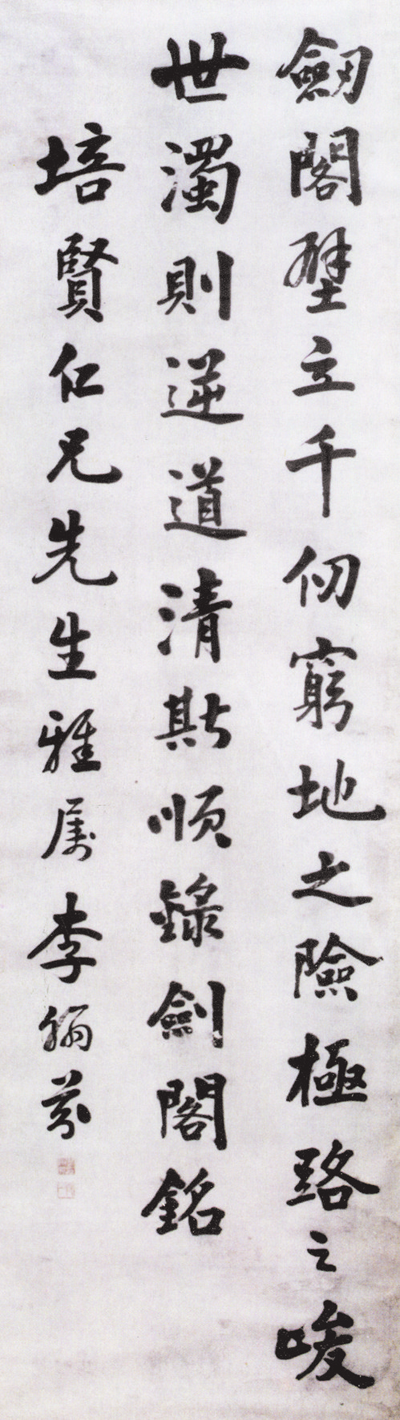 劒閣壁立千仞窮地之險極路之峻
世濁則逆道清斯順錄劍閣銘
培賢仁兄先生雅属李翰芬